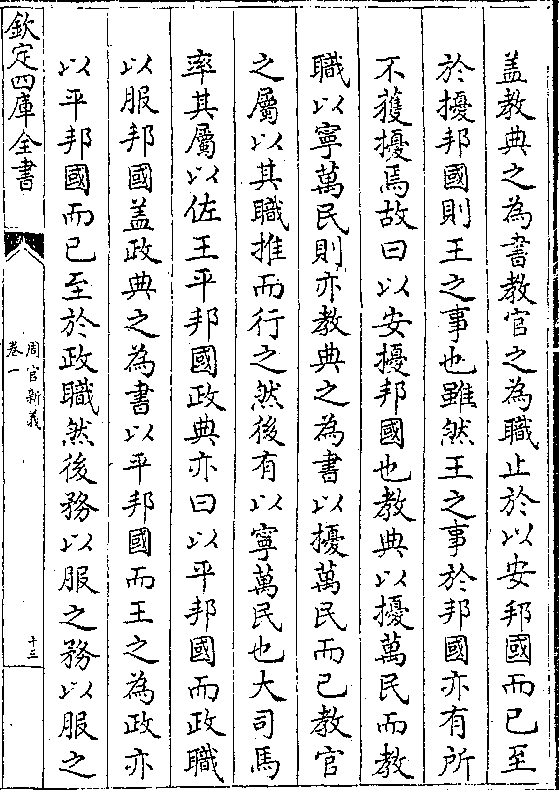 盖教典之為書教官之為職止於以安邦國而已至
於擾邦國則王之事也雖然王之事於邦國亦有所
不獲擾焉故曰以安擾邦國也教典以擾萬民而教
職以寧萬民則亦教典之為書以擾萬民而已教官
之屬以其職推而行之然後有以寧萬民也大司馬
率其屬以佐王平邦國政典亦曰以平邦國而政職
以服邦國盖政典之為書以平邦國而王之為政亦
以平邦國而已至於政職然後務以服之務以服之
欽定四庫全書
周官新義
卷一
十三